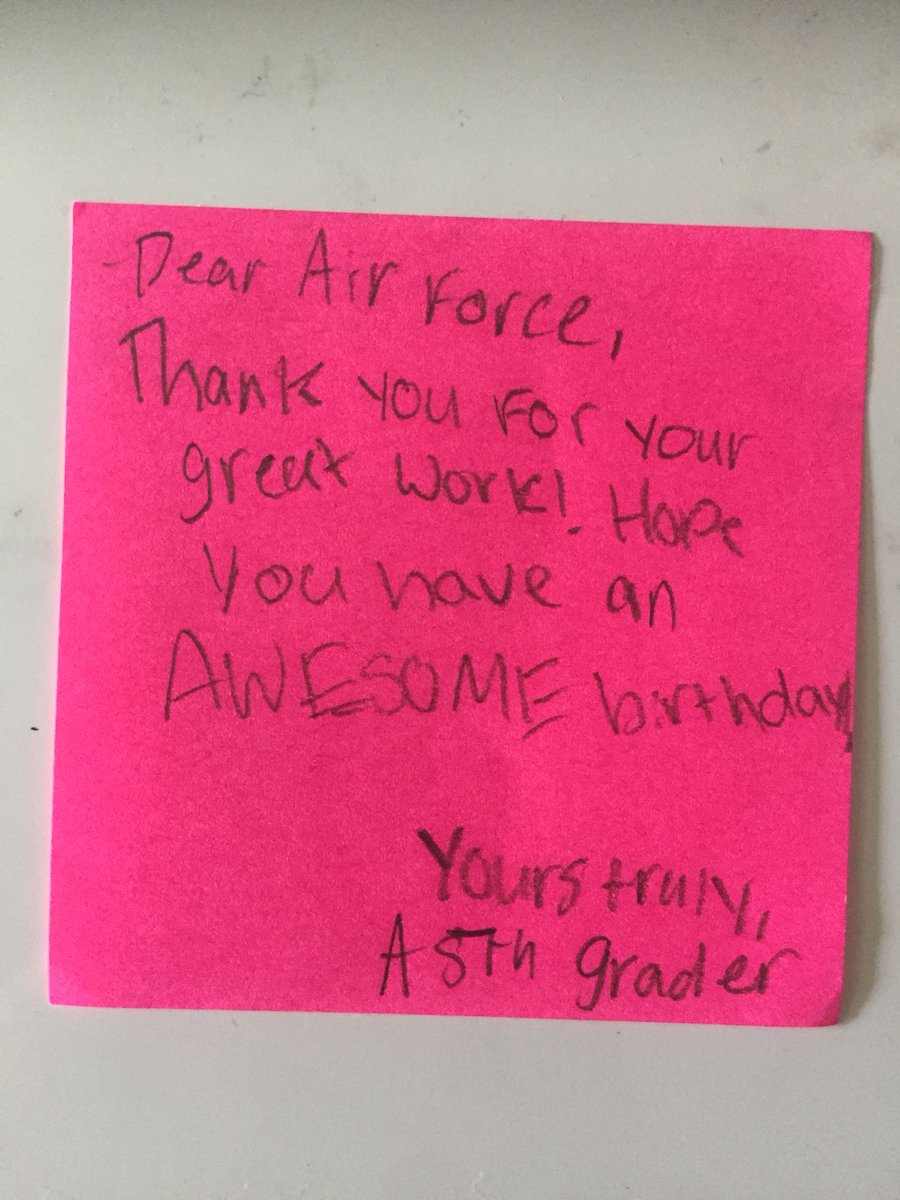 Dear Air Force,
Thank you For your
great work! Hope
you have an
AWESOME birthday!
Yours truly,
A 5th grader